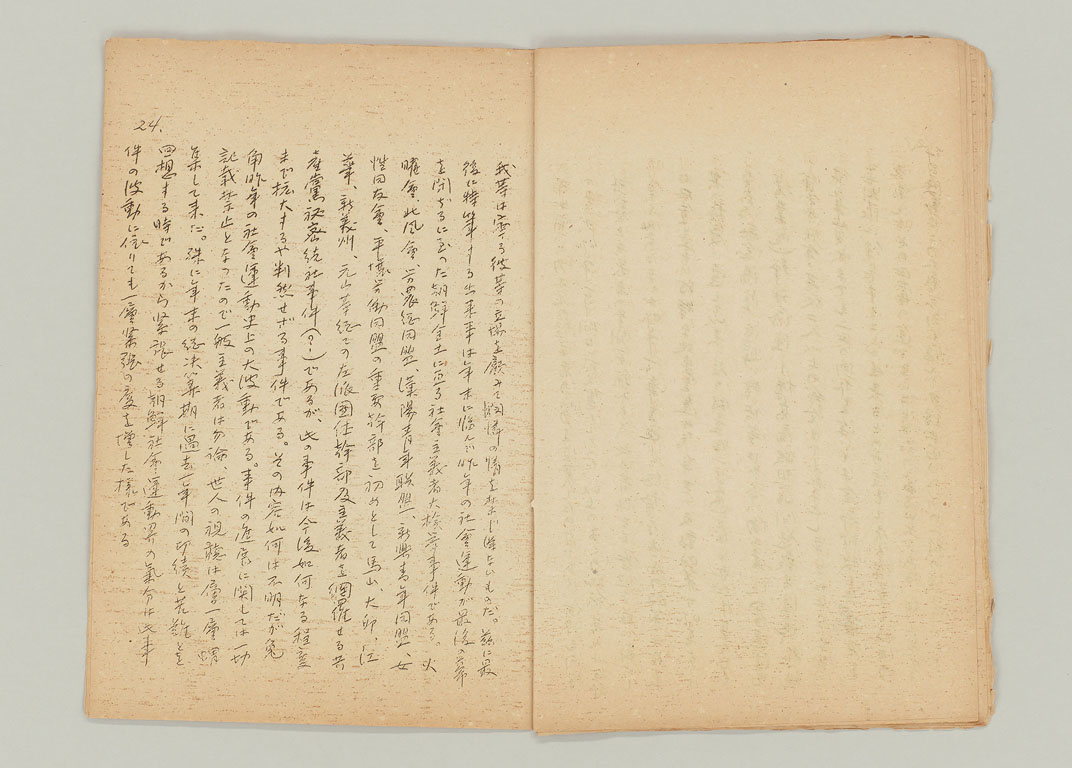 我等は寧ろ彼等の立場を顧みて同情の情を禁じ得ないものだ。茲に最
後に特筆する出来事は年末に臨んで昨年の社會運動が最後の幕
を閉ぢるに至った朝鮮全土に亘る社會主義者大檢挙事件である。火
曜會、北風會、労農総同盟、漢陽青年联盟、新興青年同盟、女
性同友會、平壌労働同盟の重要幹部を初めとして馬山、大邱、江
華、新義州、元山等総ての左派團体幹部及主義者を網羅せる共
産黨祕密結社事件(?)であるが、此の事件は今後如何なる程度
まで拡大するや判然せざる事件である。その内容如何は不明だが兎
角昨年の社會運動史上の大波動である。事件の進展に関しては一切
記載禁止となったので一般主義者は勿論、世人の視聴は層一層
集して来た。殊に年末の総決算期に過去一年間の功績と苦難とを
回想する時であるから緊張せる朝鮮社會運動界の氣分は此事
件の波動に依りても一層緊張の度を増した様である
24.